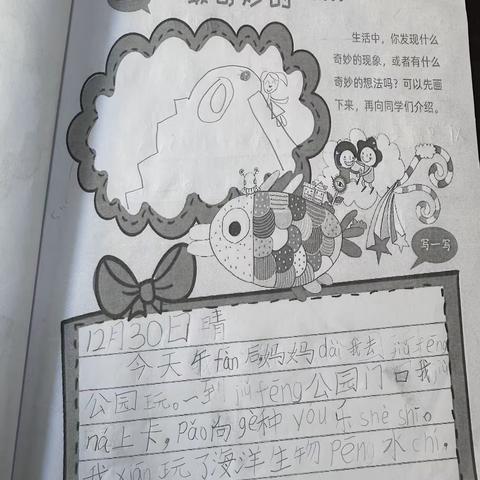 最奇妙的
生活中，你发现什么
奇妙的现象，或者有什么
奇妙的想法吗？可以先画
下来，再向同学们介绍。
写一写
12月30日 晴
今天午fàn后妈妈dài我去jiǔfēng
公园玩。一到jiǔfēng公园门口我jiù
ná上卡，pǎo向gè种yóu乐shè shī。
我xiān玩了海洋生物pēn水chí，